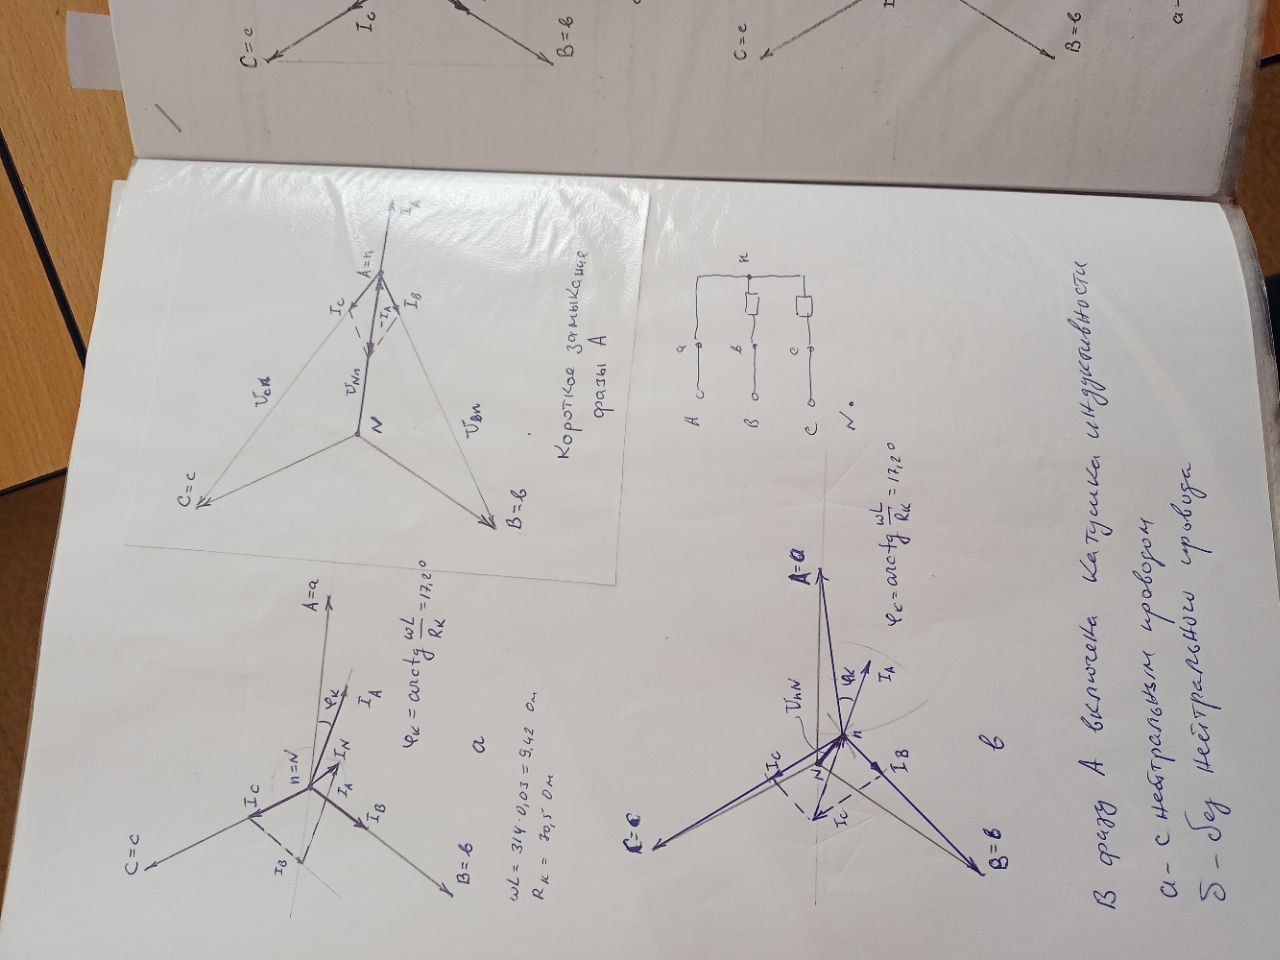 C=c
I_C
I_B
n=N
A=a
φ_K
I_A
I_N
I_A
I_B
φ_K = arctg ωL/R_K = 17,2°
B=в
а
ωL = 314·0,03 = 9,42 Ом
R_K = 30,5 Ом
C=c
U_cn
I_C
U_Nn
A=n
N
-I_A
I_B
I_A
U_вn
B=в
Короткое замыкание
фазы А
C=c
I_C
U_nN
A=a
N
I_C
n
φ_K
I_A
I_B
φ_K = arctg ωL/R_K = 17,2°
B=в
в
A
a
B
в
n
C
c
N
В фазу А включена катушка индуктивности
а – с нейтральным проводом
б – без нейтрального провода
C=c
I_C
B=в
C=c
B=в
а-